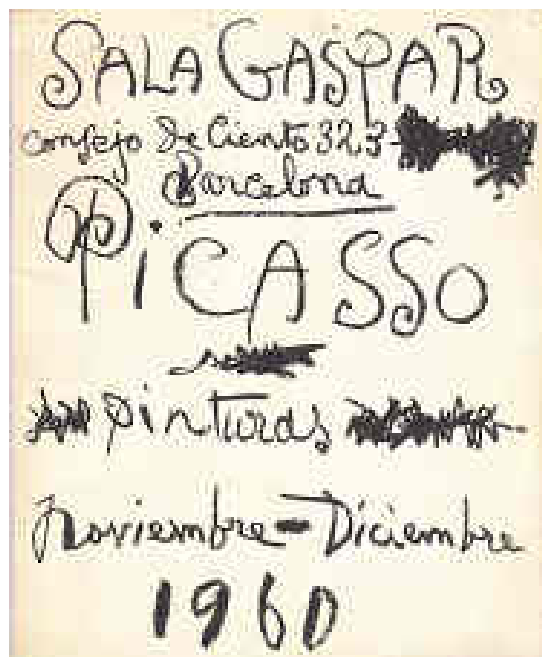 SALA GASPAR
Consejo De Ciento 323
Barcelona
PiCASSO
pinturas
Noviembre - Diciembre
1960